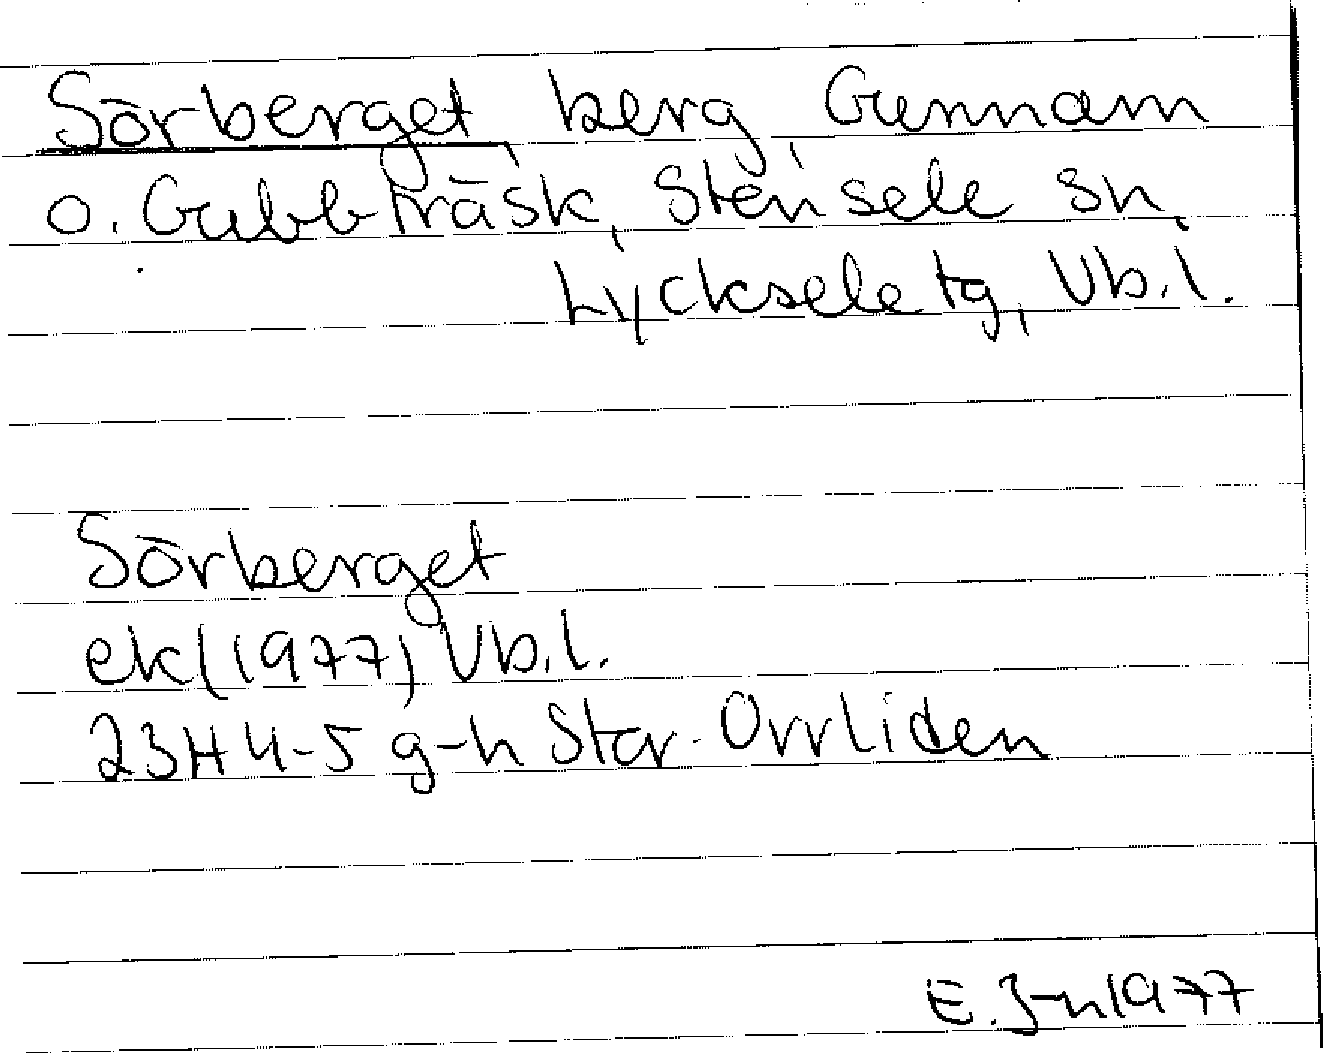 Sörberget berg, Gunnarn
o. Gubbträsk, Stensele sn,
Lycksele tg, Vb.l.
Sörberget
ek(1977) Vb.l.
23H 4-5 g-h Stor-Orrliden
E. J-n 1977